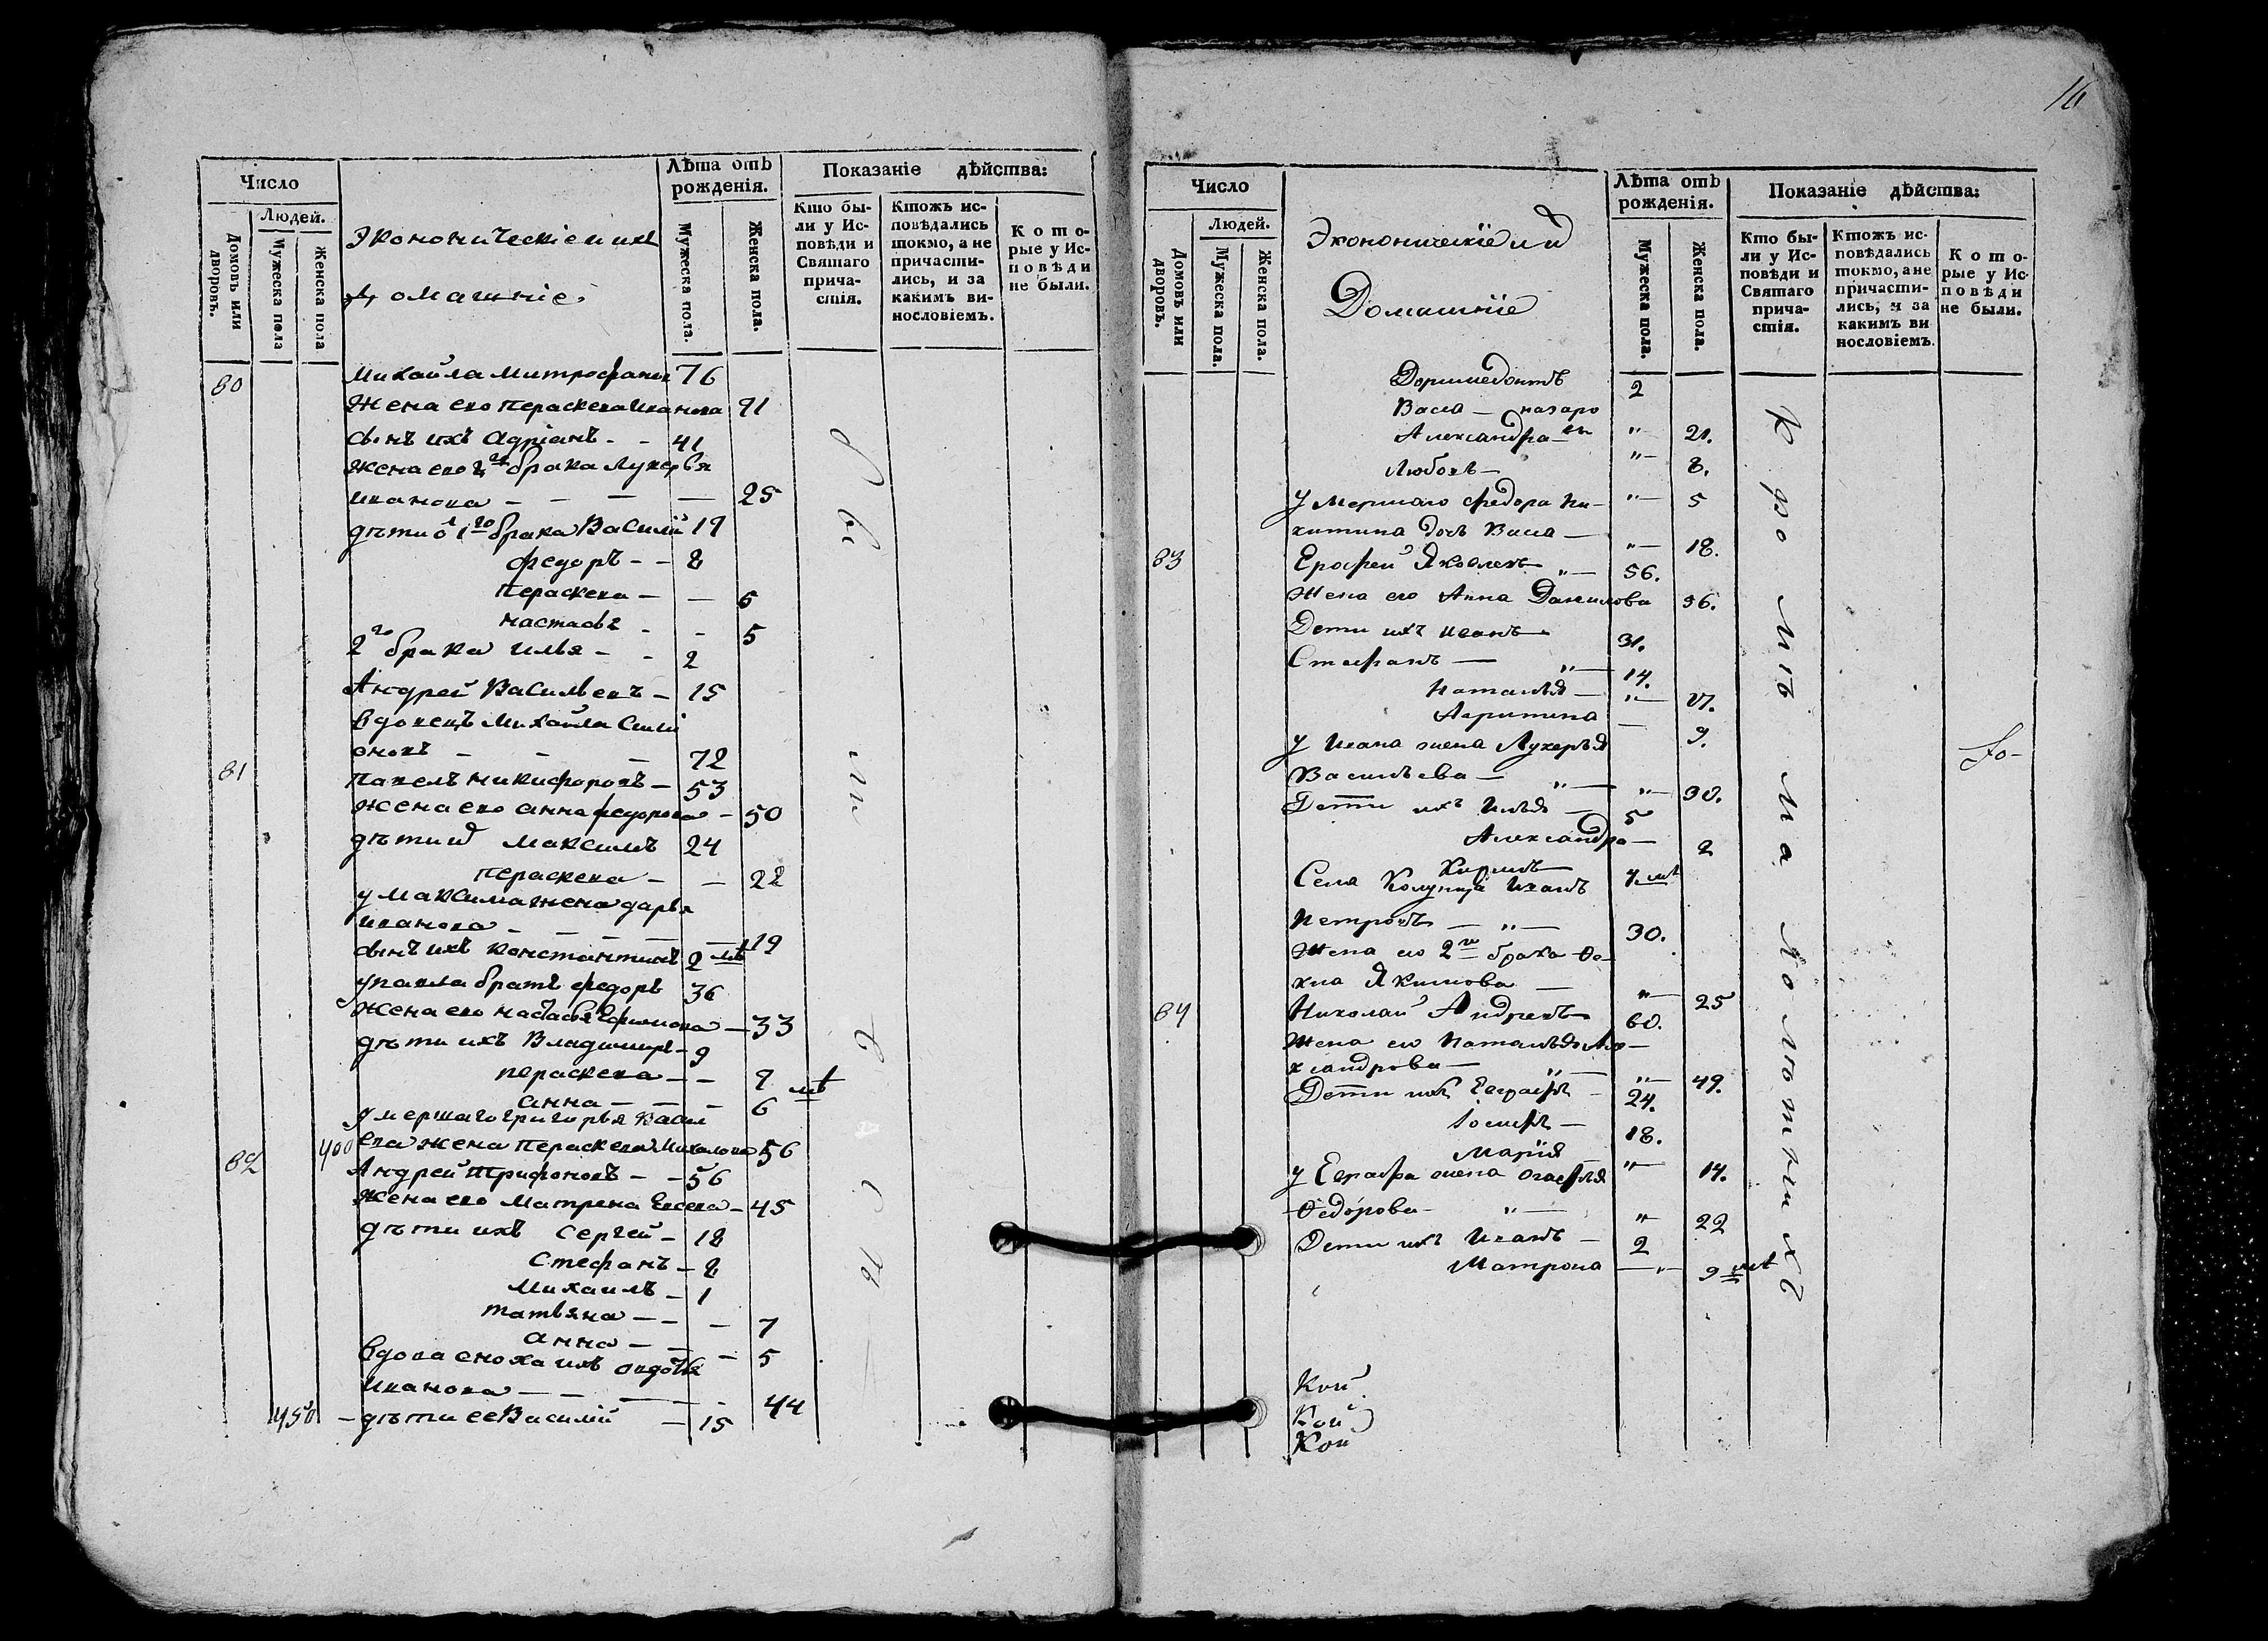 Число
Людей.
Домовъ или дворовъ.
Мужеска пола
Женска пола
Экономическіе и ихъ
Домашніе
Лѣта отъ
рожденія.
Мужеска пола.
Женска пола.
Показаніе дѣйства:
Кто бы-
ли у Ис-
повѣди и
Святаго
прича-
стія.
Ктожъ ис-
повѣдались
токмо, а не
причасти-
лись, и за
какимъ ви-
нословіемъ.
Кото-
рые у Ис-
повѣди
не были.
80 Михайла Митрофановъ 76
Жена его Параскева Иванова 71
сынъ ихъ Адріанъ - - 41
жена его 2го брака Лукерья
Иванова - - - 25
дѣти 1го брака Василій 19
Федоръ - - 8
Пераскева - - 5
Настасья - - 5
2го брака Илья - - 2
Андрей Васильевъ - 15
вдовецъ Михайла Сими
оновъ - - - 72
81 Павелъ Никифоровъ - 53
жена его Анна Федорова - 50
дѣти Максимъ 24
Пераскева - - 22
у Максима жена Дарья
Иванова - - - 19
сынъ ихъ Константинъ 2 мѣ
у Павла братъ Федоръ 36
жена его Настасья Ефимова - 33
дѣти ихъ Владимиръ - 9
Пераскева - - 9
Анна - - - 6 мѣ
умершаго Григорья Васил
400 ева жена Пераскева 56
82 Андрей Трифоновъ - - 56
жена его Матрена - 45
дѣти ихъ Сергей - 18
Стефанъ - 8
Михаилъ - 1
Татьяна - - - 7
Анна - - - 5
вдова сноха ихъ Авдотья
Иванова - - - 44
450 - дѣти ее Василій - 15
16
Число
Людей.
Домовъ или дворовъ.
Мужеска пола.
Женска пола.
Экономическіе и
Домашніе
Лѣта отъ
рожденія.
Мужеска пола.
Женска пола.
Показаніе дѣйства:
Кто бы-
ли у Ис-
повѣди и
Святаго
прича-
стія.
Ктожъ ис-
повѣдались
токмо, а не
причасти-
лись, и за
какимъ ви
нословіемъ.
Кото-
рые у Ис
повѣди
не были.
Доримедонтъ 2
Васса - назаро
Александра - "- 21.
Любовь - "- 8.
умершаго Федора Ни- "- 5
китина дочь Васса - "- 18.
83 Ерофей Яковлевъ "- 56.
Жена его Анна Данилова 56.
Дети ихъ Иванъ 31.
Стефанъ - "- 14.
Наталья - "-
Агрипина - 9.
у Ивана жена Лукерья
Васильева - "- "- 30.
Дети ихъ Илья - 5
Александра - 2
Кирилъ
Села Колунца Иванъ
Петровъ - "- 30.
Жена его 2го брака Ѳе-
кла Якимова - "- 25
84 Николай Андреевъ 60.
Жена его Наталья Але-
ксандрова - "- "- 49.
Дети ихъ Евграфъ - 24.
Іосифъ - 18.
Марія "- 14.
у Евграфа жена Агафья
Ѳедорова - "- "- 22
Дети ихъ Иванъ - 2
Матрона - "- 9 мѣ
Кой
Кой
Кой
Кромѣ малолѣтнихъ